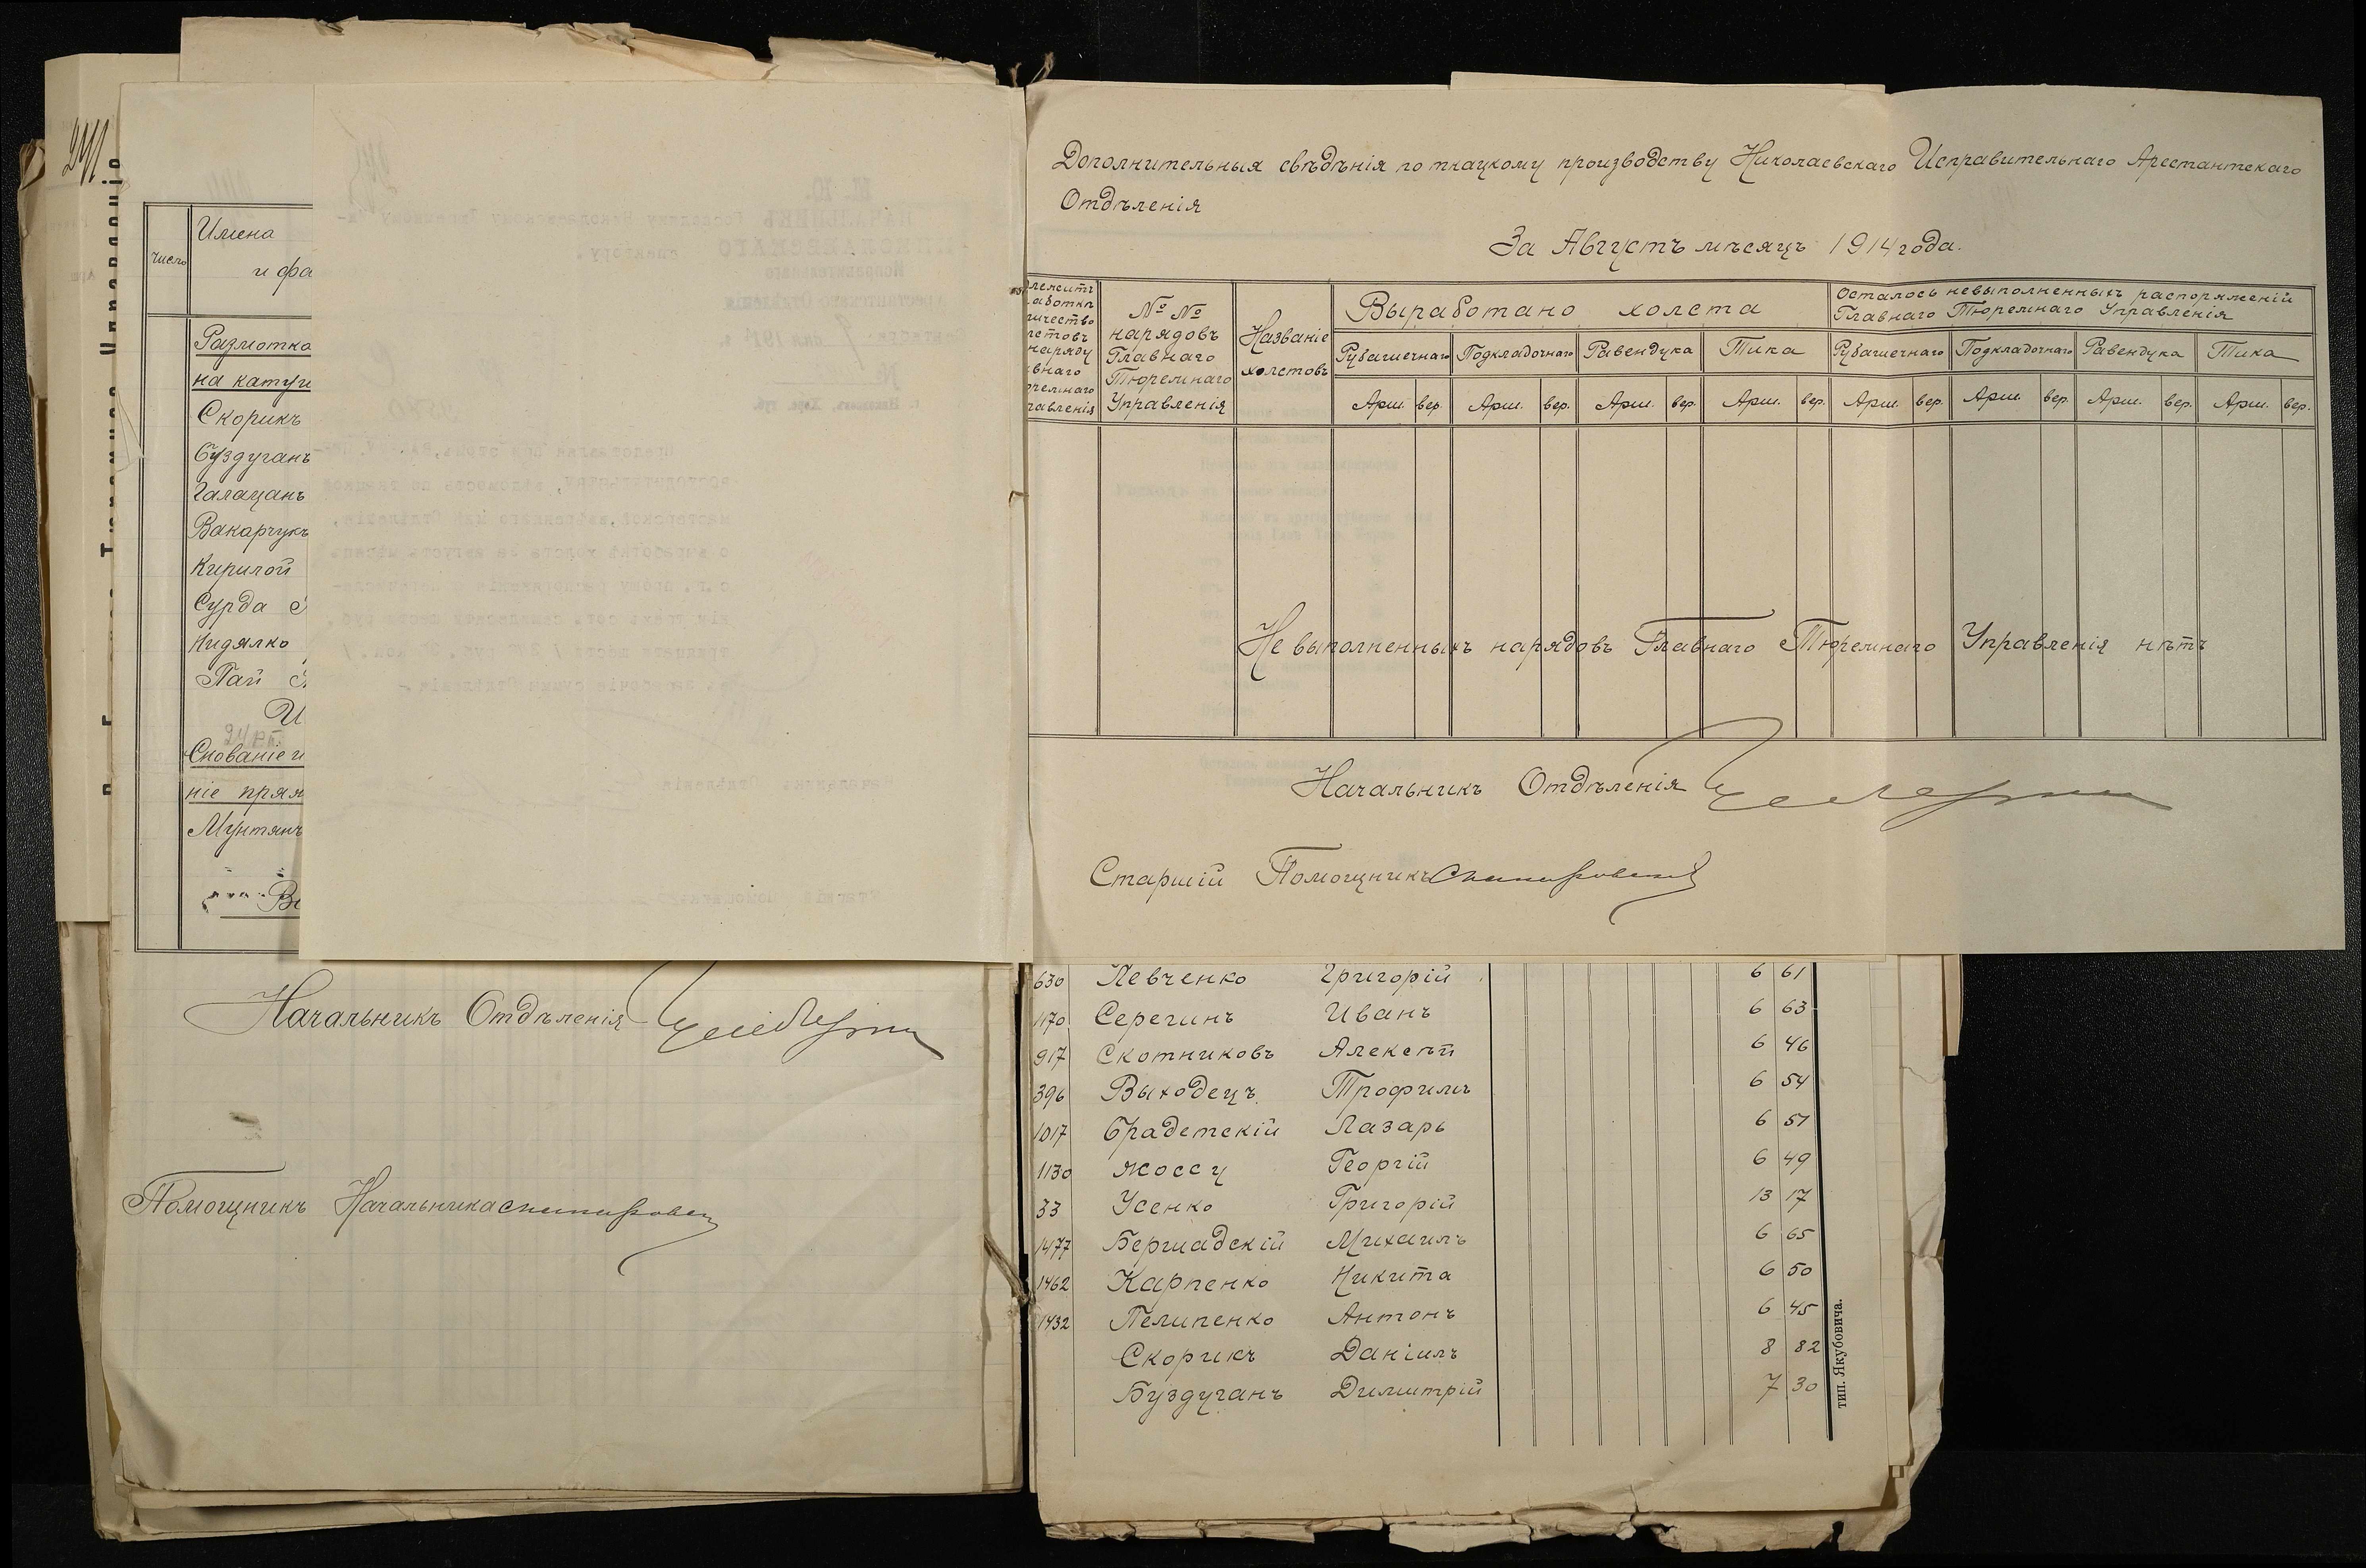 241
число
Имена
и фа
Размотка
на катуш
Скорикъ
Буздуганъ
Галацанъ
Вакарчукъ
Кирилой
Сурда
Нидялко
Пай
И
24 рт.
Снованіе и
ніе пряж
Мунтянъ
Вс
Начальникъ Отдѣленія
Помощникъ Начальника
Дополнительныя свѣдѣнія по ткацкому производству Николаевскаго Исправительнаго Арестантскаго
Отдѣленія
За Августъ мѣсяцъ 1914 года.
лежитъ
аботкѣ
ичество
лстовъ
наряду
авнаго
ремнаго
равленія
№ №
нарядовъ
Главнаго
Тюремнаго
Управленія
Названіе
холстовъ
Выработано холста
Осталось невыполненныхъ распоряженій
Главнаго Тюремнаго Управленія
Рубашечнаго Подкладочнаго Равендука Тика Рубашечнаго Подкладочнаго Равендука Тика
Арш. вер. Арш. вер. Арш. вер. Арш. вер. Арш. вер. Арш. вер. Арш. вер. Арш. вер.
Не выполненныхъ нарядовъ Главнаго Тюремнаго Управленія нѣтъ
Начальникъ Отдѣленія
Старшій Помощникъ
630 Левченко Григорій 6 61
1170 Серегинъ Иванъ 6 63
917 Скотниковъ Алексѣй 6 46
396 Выходецъ Трофимъ 6 54
1017 Брадетскій Лазарь 6 51
1130 Жоссу Георгій 6 49
33 Усенко Григорій 13 17
1477 Бершадскій Михаилъ 6 65
1462 Карпенко Никита 6 50
1432 Пелипенко Антонъ 6 45
Скорикъ Даніилъ 8 82
Буздуганъ Димитрій 7 30
тип. Якубовича.